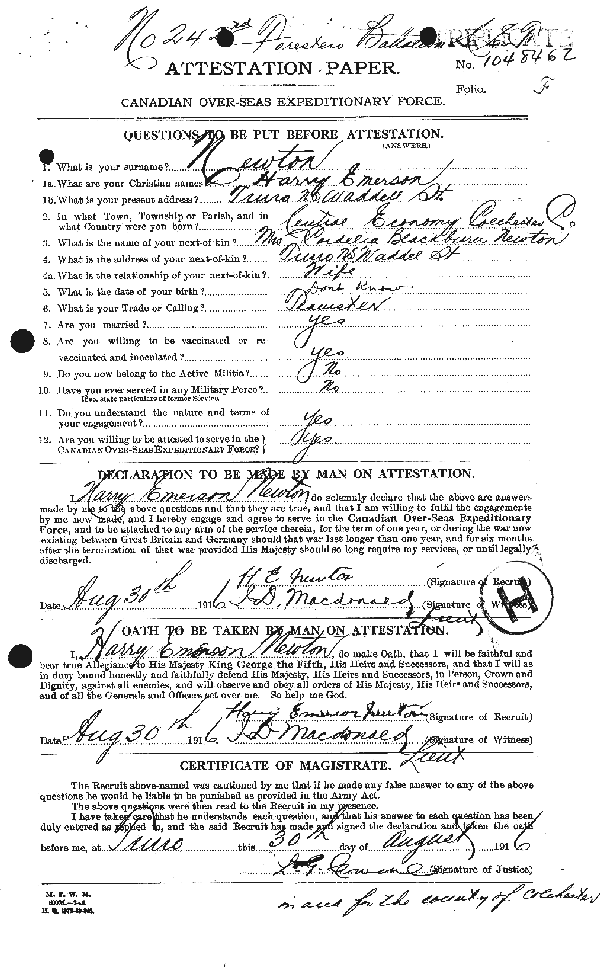 No 242nd Foresters Battalion C.E.F.
ATTESTATION PAPER.
No. 1048462
Folio. F
CANADIAN OVER-SEAS EXPEDITIONARY FORCE.
QUESTIONS TO BE PUT BEFORE ATTESTATION.
(ANSWERS)
1. What is your surname? Newton
1a. What are your Christian names? Harry Emerson
1b. What is your present address? Truro NS Waddell St
2. In what Town, Township or Parish, and in
what Country were you born? Central Economy Colchester Co.
3. What is the name of your next-of-kin? Mrs Cordelia Blackburn Newton
4. What is the address of your next-of-kin? Truro NS Waddel St
4a. What is the relationship of your next-of-kin? Wife
5. What is the date of your birth? Dont Know
6. What is your Trade or Calling? Teamster
7. Are you married? Yes
8. Are you willing to be vaccinated or re-
vaccinated and inoculated? Yes
9. Do you now belong to the Active Militia? No
10. Have you ever served in any Military Force? No
If so, state particulars of former Service.
11. Do you understand the nature and terms of
your engagement? Yes
12. Are you willing to be attested to serve in the
CANADIAN OVER-SEAS EXPEDITIONARY FORCE? Yes
DECLARATION TO BE MADE BY MAN ON ATTESTATION.
I, Harry Emerson Newton, do solemnly declare that the above are answers
made by me to the above questions and that they are true, and that I am willing to fulfil the engagements
by me now made, and I hereby engage and agree to serve in the Canadian Over-Seas Expeditionary
Force, and to be attached to any arm of the service therein, for the term of one year, or during the war now
existing between Great Britain and Germany should that war last longer than one year, and for six months
after the termination of that war provided His Majesty should so long require my services, or until legally
discharged.
H E Newton (Signature of Recruit)
Date Aug 30th 1916 D. Macdonald Lieut (Signature of Witness)
H
OATH TO BE TAKEN BY MAN ON ATTESTATION.
I, Harry Emerson Newton, do make Oath, that I will be faithful and
bear true Allegiance to His Majesty King George the Fifth, His Heirs and Successors, and that I will as
in duty bound honestly and faithfully defend His Majesty, His Heirs and Successors, in Person, Crown and
Dignity, against all enemies, and will observe and obey all orders of His Majesty, His Heirs and Successors,
and of all the Generals and Officers set over me. So help me God.
Harry Emerson Newton (Signature of Recruit)
Date Aug 30th 1916 D Macdonald Lieut (Signature of Witness)
CERTIFICATE OF MAGISTRATE.
The Recruit above-named was cautioned by me that if he made any false answer to any of the above
questions he would be liable to be punished as provided in the Army Act.
The above questions were then read to the Recruit in my presence.
I have taken care that he understands each question, and that his answer to each question has been
duly entered as replied to, and the said Recruit has made and signed the declaration and taken the oath
before me, at Truro this 30th day of August 1916
(Signature of Justice)
M. F. W. 23.
in and for the county of Colchester